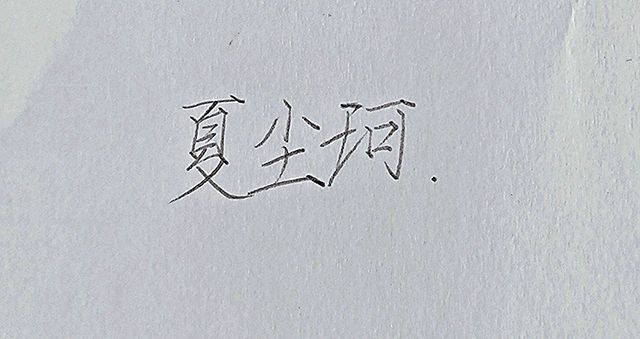 夏尘珂.